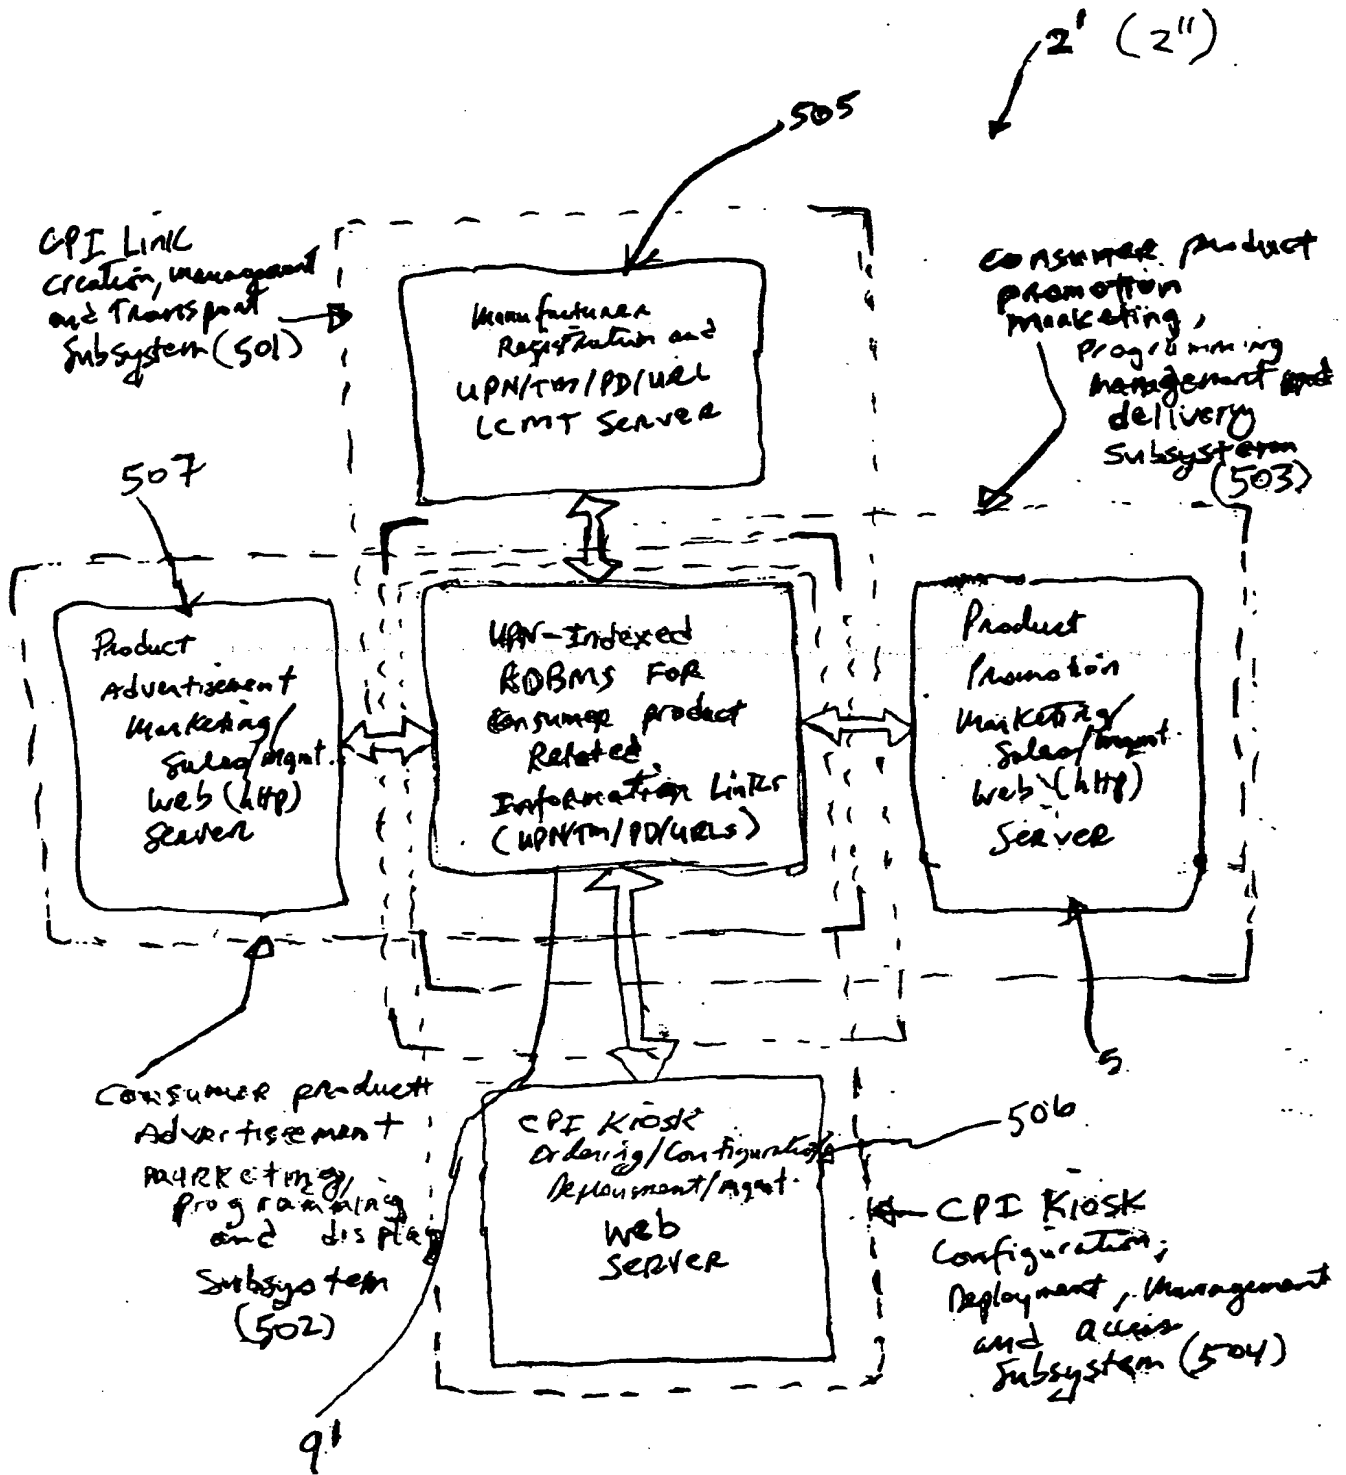 2' (2'')
505
CPI Link
Creation, Management
and Transport
Subsystem (501)
Manufacturer
Registration and
UPN/TM/PD/URL
LCMT Server
Consumer product
promotion
marketing,
Programming
management and
delivery
Subsystem
(503)
507
Product
Advertisement
Marketing/
Sales/Mgmt.
Web (http)
Server
UPN-Indexed
RDBMS FOR
Consumer product
Related
Information Links
(UPN/TM/PD/URLs)
Product
Promotion
Marketing/
Sales/Mgmt.
Web (http)
Server
5
Consumer product
Advertisement
Marketing,
Programming
and display
Subsystem
(502)
CPI Kiosk
Ordering/Configuration
Deployment/Mgmt.
Web
Server
506
CPI Kiosk
Configuration,
Deployment, Management
and access
Subsystem (504)
9'